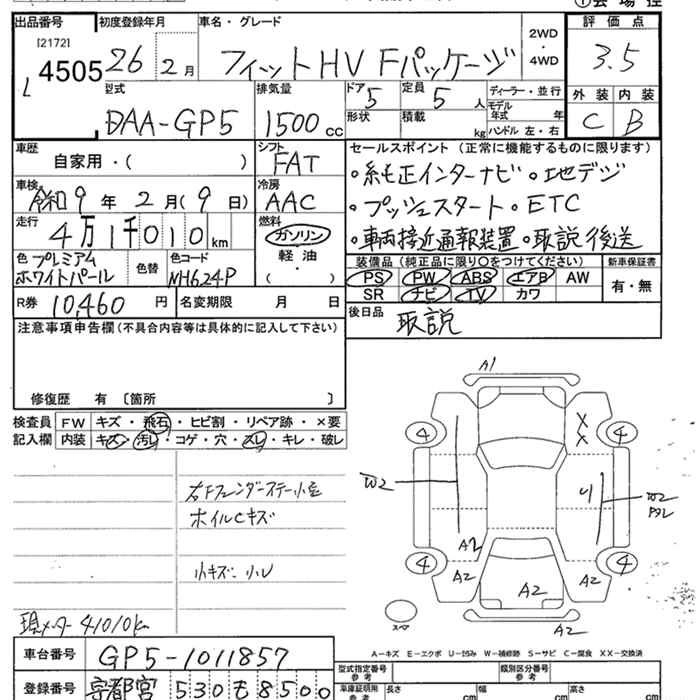 ①会場控
出品番号 初度登録年月 車名・グレード 2WD ・ 4WD 評価点
[2172]
4505 26 2月 フィットHV Fパッケージ 3.5
型式 排気量 ドア 5 定員 5人 ディーラー・並行 外装 内装
DAA-GP5 1500cc 形状 積載 kg モデル年式 年 ハンドル 左・右 C B
車歴 自家用・( ) シフト FAT セールスポイント (正常に機能するものに限ります)
車検 令和9年2月(9日) 冷房 AAC ・純正インターナビ・地デジ
走行 4万1千010km 燃料 ガソリン ・プッシュスタート・ETC
軽油 ・車両接近通報装置・取説後送
色 プレミアムホワイトパール 色替 色コード NH624P ・( )
装備品 (純正品に限り○をつけてください) 新車保証書
PS PW ABS エアB AW 有・無
SR ナビ TV カワ
R券 10,460円 名変期限 月 日
後日品 取説
注意事項申告欄(不具合内容等は具体的に記入して下さい)
修復歴 有 〔箇所 〕
検査員 FW キズ・飛石・ヒビ割・リペア跡・×要
記入欄 内装 キズ・汚レ・コゲ・穴・スレ・キレ・破レ
右Fフェンダーステー小歪
ホイルCキズ
小キズ・凹
現メーター41010km
A1
4 X X 4
W2 U W2
A2
4 A2 A2 A2 4
スペア A2
A-キズ E-エクボ U-凹み W-補修跡 S-サビ C-腐食 XX-交換済
車台番号 GP5-1011857
型式指定番号 参考 類別区分番号 参考
登録番号 宇都宮 530も8500
車庫証明用 参考 長さ cm 幅 cm 高さ cm